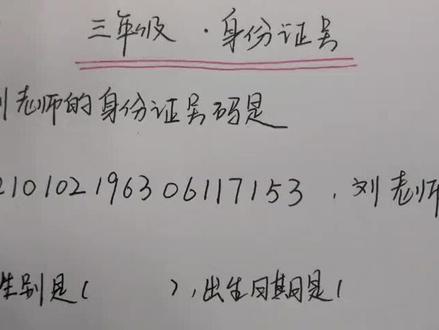 三年级·身份证号
刘老师的身份证号码是
210102196306117153,刘老师
性别是( ),出生日期是(